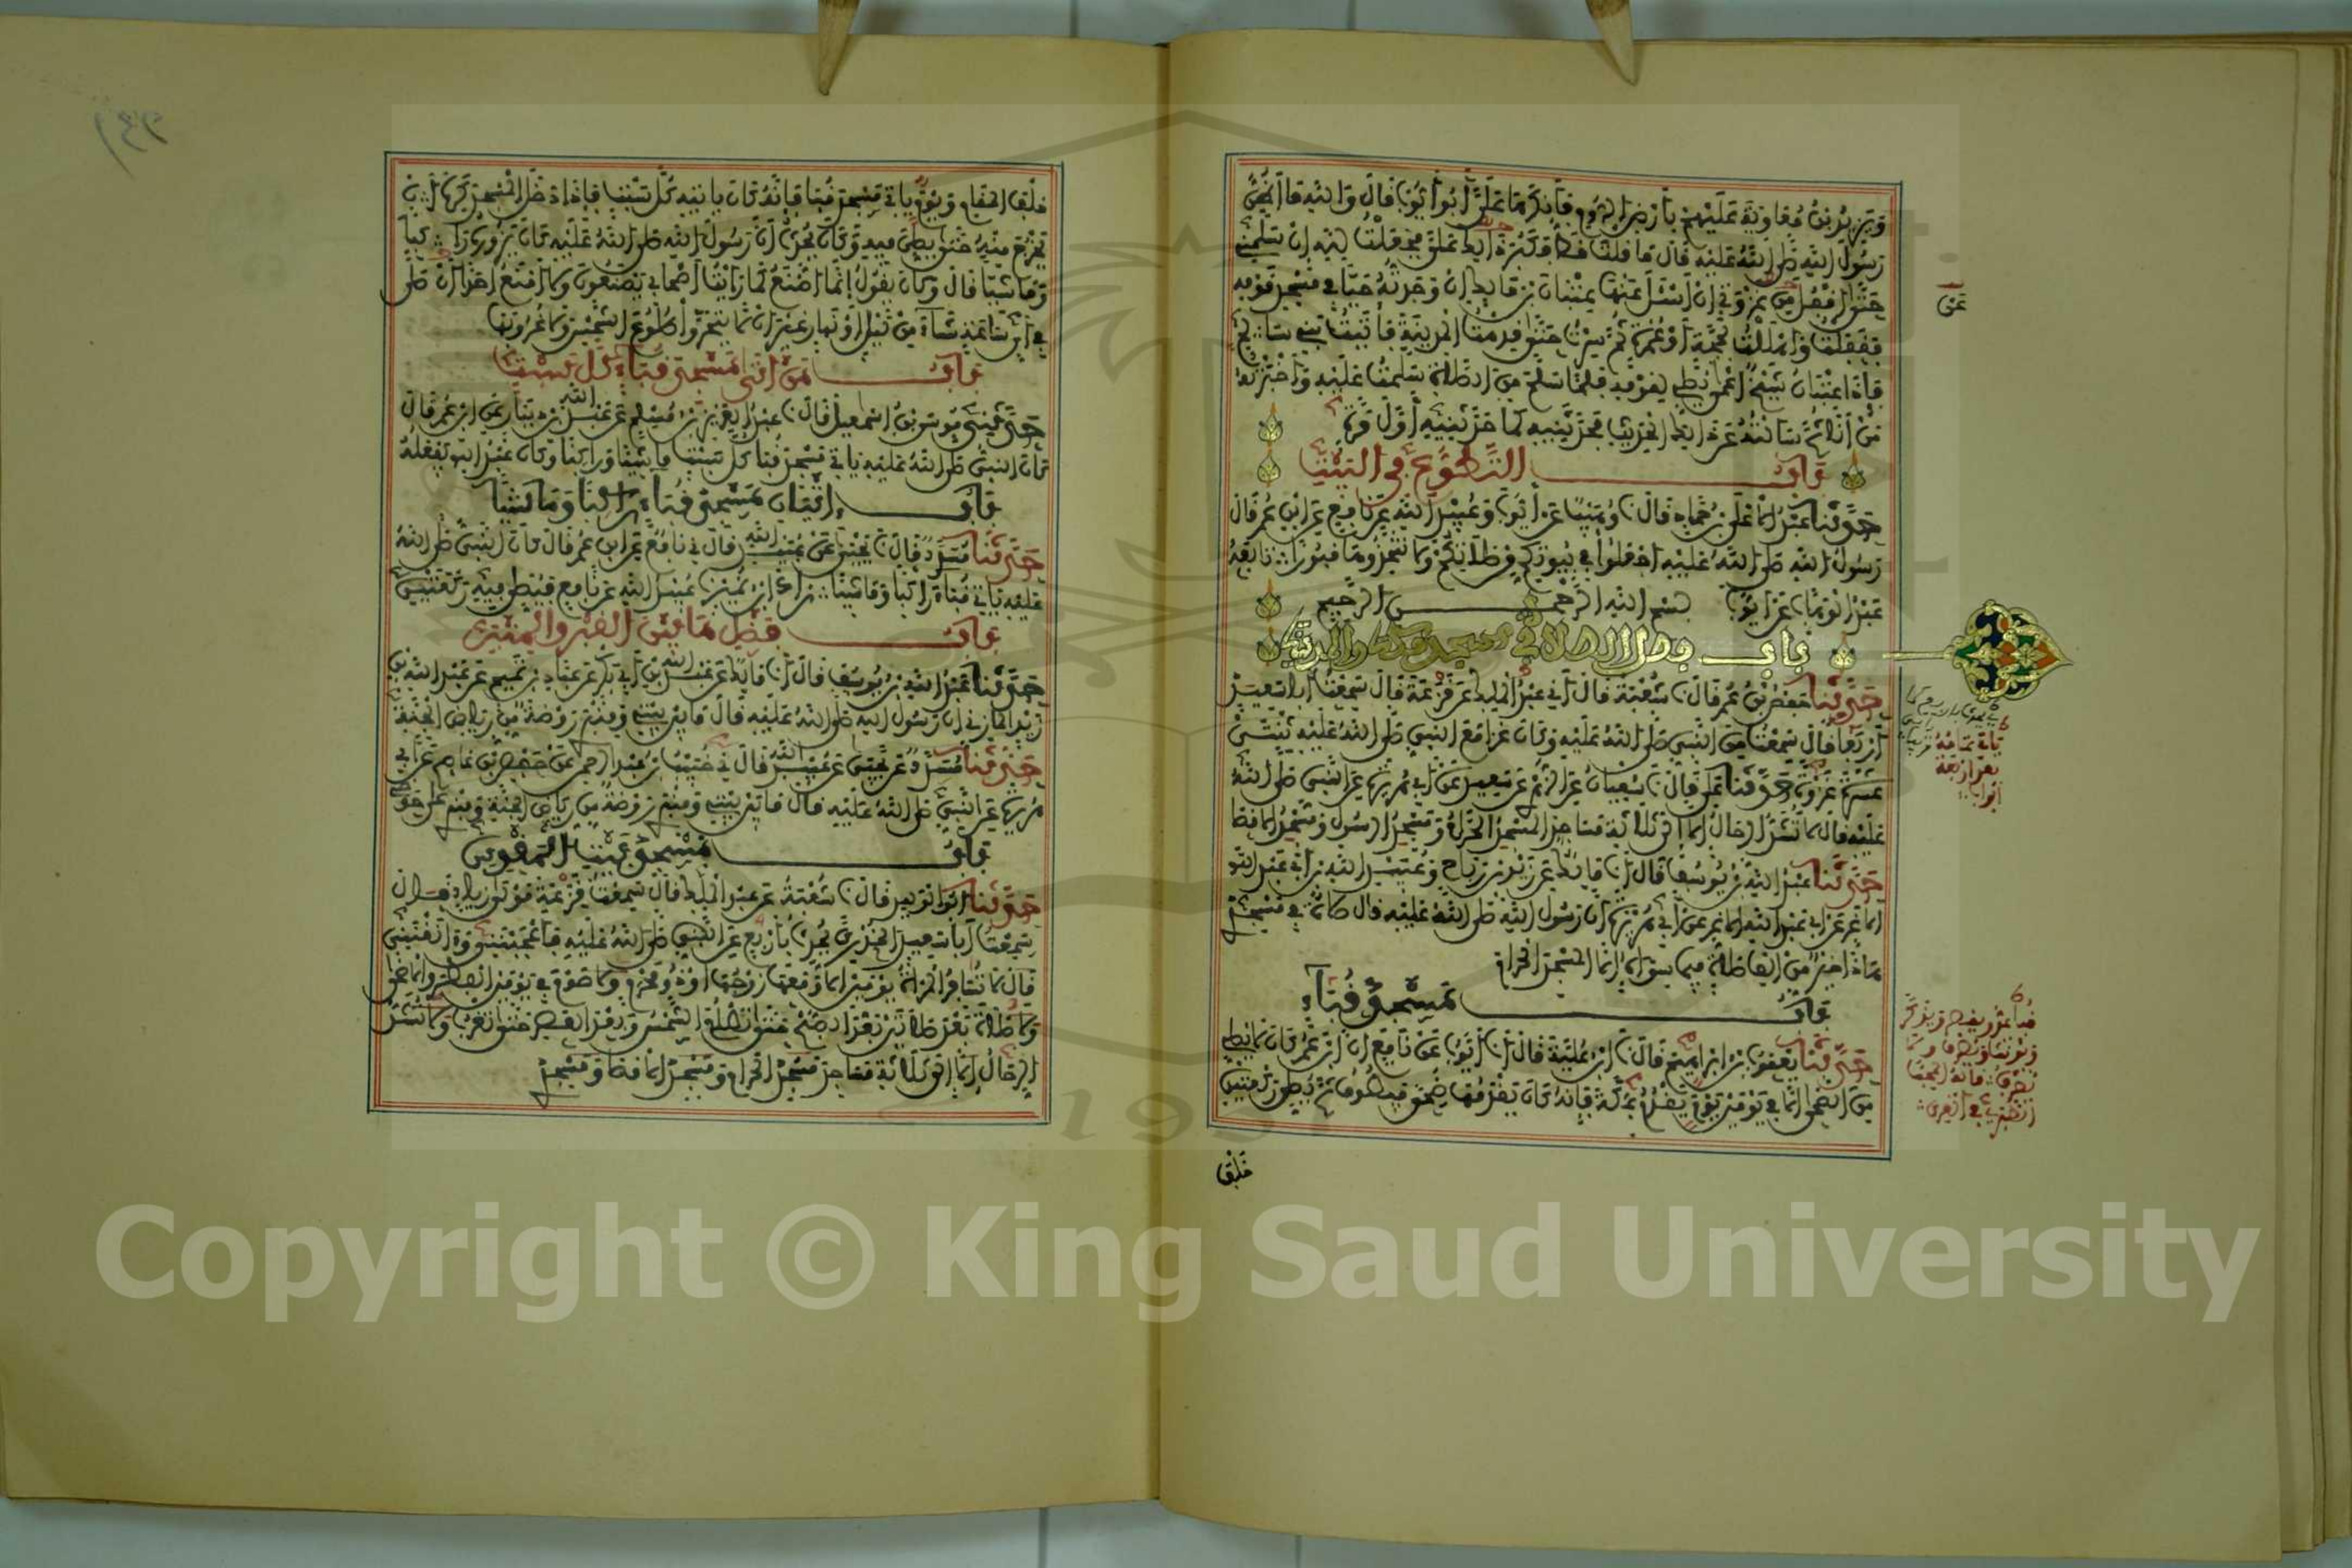 ويزيد بن معاوية عليهم بأرض الروم فأنكرها علي أبو أيوب قال والله ما أظن
رسول الله صلى الله عليه قال ما قلت قط فكبر ذلك علي فجعلت لله إن سلمني
حتى أقفل من غزوتي أن أسئل عنها عتبان بن مالك إن وجدته حيا في مسجد قومه
فقفلت وأهللت بحجة أو عمرة ثم سرت حتى قدمت المدينة فأتيت بني سالم
فإذا عتبان شيخ أعمى يصلي لقومه فلما سلم من الصلاة سلمت عليه وأخبرته
من أنا ثم سألته عن ذلك الحديث فحدثنيه كما حدثنيه أول مرة
باب التطوع في البيت
حدثنا عبد الأعلى بن حماد قال وهيب عن أيوب وعبيد الله عن نافع عن ابن عمر قال
رسول الله صلى الله عليه اجعلوا في بيوتكم من صلاتكم ولا تتخذوها قبورا تابعه
عبد الوهاب عن أيوب بسم الله الرحمن الرحيم
باب فضل الصلاة في مسجد مكة والمدينة
حدثنا حفص بن عمر قال شعبة قال ني عبد الملك عن قزعة قال سمعت أبا سعيد
أربعا قال سمعت من النبي صلى الله عليه وكان غزا مع النبي صلى الله عليه ثنتي
عشرة غزوة حدثنا علي قال سفيان عن الزهري عن سعيد عن أبي هريرة عن النبي صلى الله
عليه قال لا تشد الرحال إلا إلى ثلاثة مساجد المسجد الحرام ومسجد الرسول ومسجد الأقصا
حدثنا عبد الله بن يوسف قال أنا مالك عن زيد بن رباح وعبيد الله بن أبي عبد الله
الأغر عن أبي عبد الله الأغر عن أبي هريرة أن رسول الله صلى الله عليه قال صلاة في مسجدي
هذا خير من ألف صلاة فيما سواه إلا المسجد الحرام
باب مسجد قباء
حدثنا يعقوب بن إبراهيم قال ابن علية قال أنا أيوب عن نافع أن ابن عمر كان لا يصلي
من الضحى إلا في يومين يوم يقدم مكة فإنه كان يقدمها ضحى فيطوف ثم يصلي ركعتين
خلف
عن
يأتي تمامه
بعد أربعة
أبواب
خلف المقام ويوم يأتي مسجد قبا فإنه كان يأتيه كل سبت فإذا دخل المسجد كره أن
يخرج منه حتى يصلي فيه وكان يحدث أن رسول الله صلى الله عليه كان يزوره راكبا
وماشيا قال وكان يقول إنما أصنع كما رأيت أصحابي يصنعون ولا أمنع أحدا أن صلى
في أي ساعة شاء من ليل أو نهار غير أن لا يتحروا طلوع الشمس ولا غروبها
باب من أتى مسجد قباء كل سبت
حدثني موسى بن إسمعيل قال عبد العزيز بن مسلم عن عبد الله بن دينار عن ابن عمر قال
كان النبي صلى الله عليه يأتي مسجد قبا كل سبت ماشيا وراكبا وكان عبد الله يفعله
باب إتيان مسجد قباء راكبا وماشيا
حدثنا مسدد قال يحيى عن عبيد الله قال ني نافع عن ابن عمر قال كان النبي صلى الله
عليه يأتي قباء راكبا وماشيا زاد ابن نمير عبيد الله عن نافع فيصلي فيه ركعتين
باب فضل ما بين القبر والمنبر
حدثنا عبد الله بن يوسف قال أنا مالك عن عبد الله بن أبي بكر عن عباد بن تميم عن عبد الله بن
زيد المازني أن رسول الله صلى الله عليه قال ما بين بيتي ومنبري روضة من رياض الجنة
حدثنا مسدد عن يحيى عن عبيد الله قال ني خبيب بن عبد الرحمن عن حفص بن عاصم عن أبي
هريرة عن النبي صلى الله عليه قال ما بين بيتي ومنبري روضة من رياض الجنة ومنبري على حوضي
باب مسجد بيت المقدس
حدثنا أبو الوليد قال شعبة عن عبد الملك قال سمعت قزعة مولى زياد قال
سمعت أبا سعيد الخدري يحدث بأربع عن النبي صلى الله عليه فأعجبنني وآنقنني
قال لا تسافر المرأة يومين إلا ومعها زوجها أو ذو محرم ولا صوم في يومين الفطر والأضحى
ولا صلاة بعد صلاتين بعد الصبح حتى تطلع الشمس وبعد العصر حتى تغرب ولا تشد
الرحال إلا إلى ثلاثة مساجد مسجد الحرام ومسجد الأقصا ومسجدي
Copyright © King Saud University